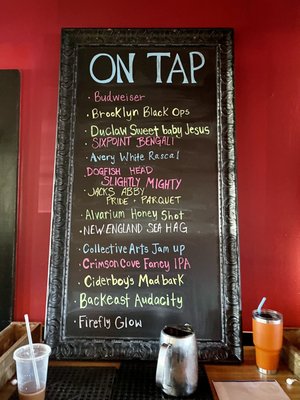 ON TAP
· Budweiser
· Brooklyn Black Ops
· Duclaw Sweet baby Jesus
· SIXPOINT BENGALI
· Avery White Rascal
DOGFISH HEAD
SLIGHTLY MIGHTY
· JACKS ABBY
PRIDE · PARQUET
· Alvarium Honey Shot
· NEW ENGLAND SEA HAG
· Collective Arts Jam up
· Crimson Cove Fancy IPA
· Ciderboys Mad bark
· Backeast Audacity
· Firefly Glow